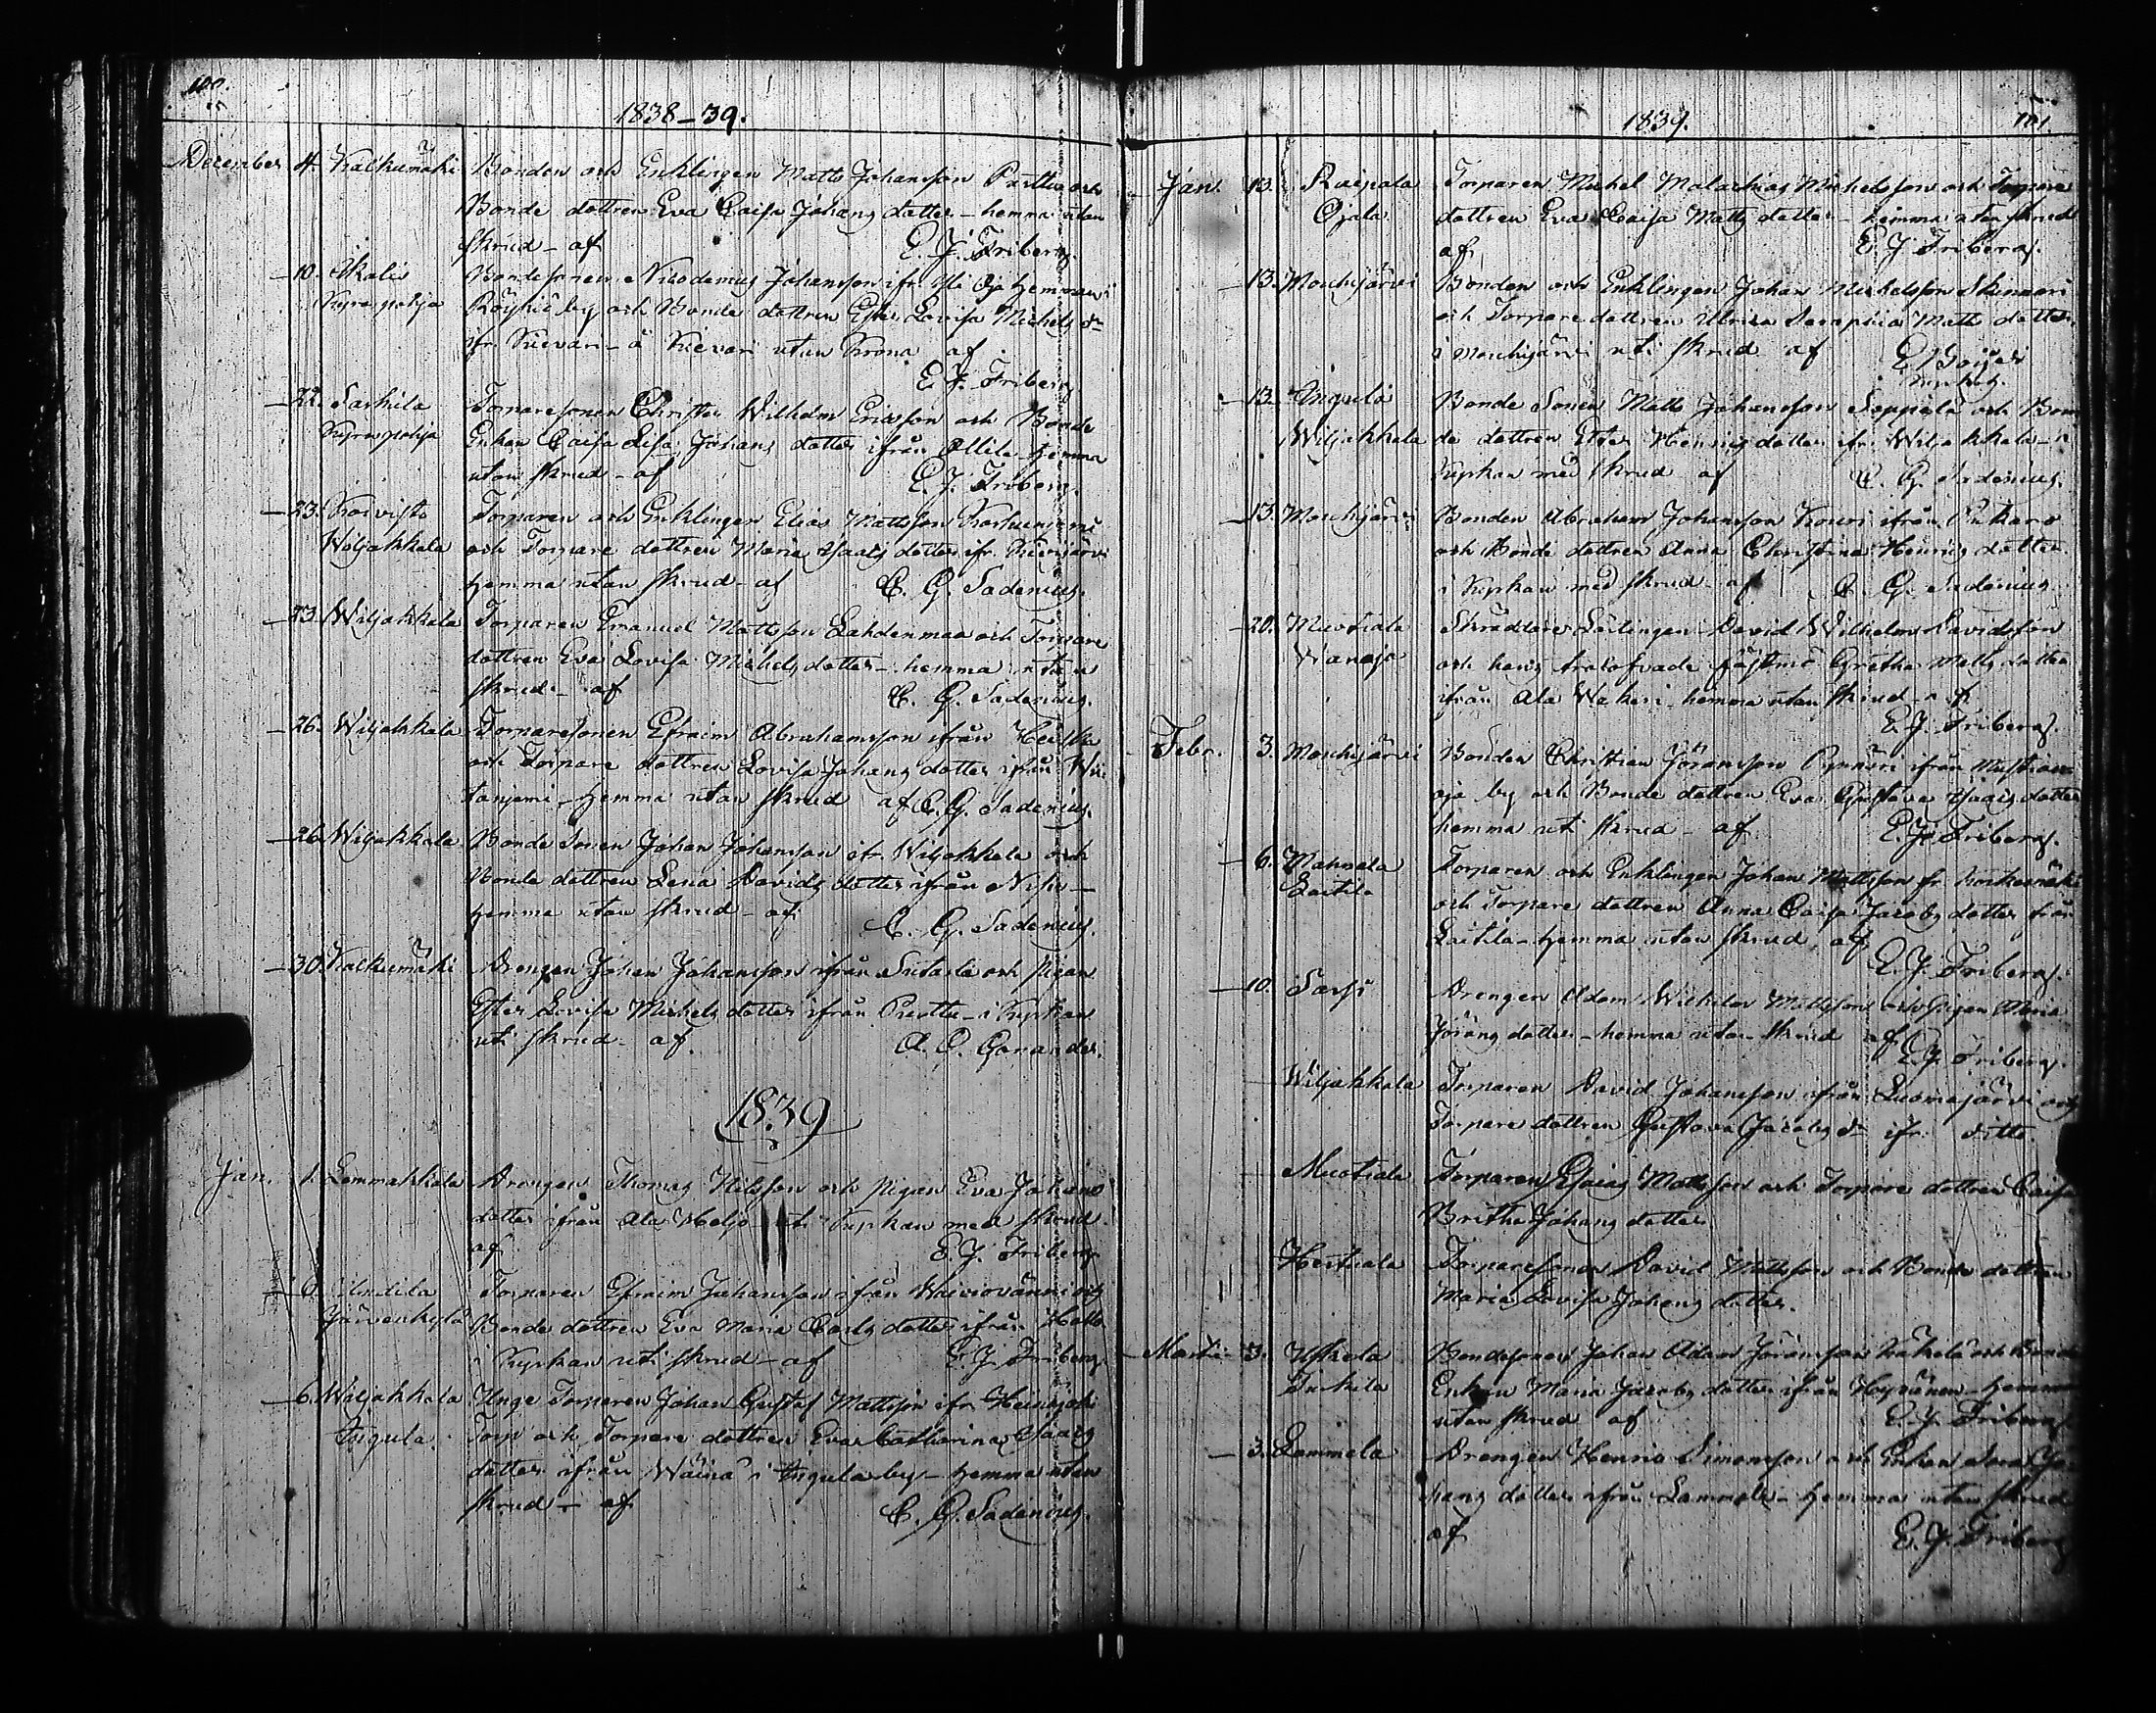 100.
1838–39.
December 4. Kalkumäki Bonden och Enklingen Matts Johansson Parttu och
Bonde dottren Eva Caisa Johans dotter – hemma utan
skrud – af E. J. Friberg.
– 10. Skali Bondesonen Nicodemus Johansson ifr. Oja hemman i
Kyrospohja Röyhiö by och Bonde dottren Ester Lovisa Michels dr
ifr. Kievari – å Kievari utan Krona af
E. J. Friberg.
– 22. Sarkila Torparesonen Christer Wilhelm Ericsson och Bonde
Kyrospohja Enkan Caisa Lisa Johans dotter ifrån Ollila hemma
utan skrud – af E. J. Friberg.
– 23. Koivisto Torparen och Enklingen Elias Mattsson
Wiljakkala och Torpare dottren Maria Isaacs dotter ifr. Kierijärvi
hemma utan skrud – af C. G. Sadenius.
– 23. Wiljakkala Torparen Emanuel Mattsson Lahdenmaa och Torpare
dottren Eva Lovisa Michels dotter – hemma utan
skrud – af C. G. Sadenius.
– 26. Wiljakkala Torparesonen Efraim Abrahamsson ifrån Heiska
och Torpare dottren Lovisa Johans dotter ifrån Wii
taniemi – hemma utan skrud af C. G. Sadenius.
– 26. Wiljakkala Bonde Sonen Johan Johansson ifr. Wiljakkala och
Bonde dottren Lena Davids dotter ifrån Nisu –
hemma utan skrud – af
C. G. Sadenius.
– 30. Kalkumäki Drengen Johan Johansson ifrån och pigan
Ester Lovisa Michels dotter ifrån Perttu – i Kyrkan
uti skrud – af A. O. Granander.
1839
Jan. 1. Lemmakkala Drengen Thomas Nilsson och pigan Eva Johans
dotter ifrån Ala Heljo – uti Kyrkan med skrud
af E. J. Friberg
– 6. Torparen Efraim Johansson ifrån och
Järvenkylä Bonde dottren Eva Maria Carls dotter ifrån
i Kyrkan uti skrud – af E. J. Friberg
– 6. Wiljakkala Unge Torparen Johan Gustaf Mattsson ifr. Heinijoki
Ingula Torp och Torpare dottren Eva Catharina Isaacs
dotter ifrån Wäinä i Ingula by – hemma utan
skrud – af C. G. Sadenius.
1839. 101.
Jan. 13. Raipala Torparen Michel Malachias Michelsson och Torpare
Ojala dottren Eva Caisa Matts dotter – hemma utan skrud
af E. J. Friberg.
– 13. Mouhijärvi Bonden och Enklingen Johan Michelsson Skinnari
och Torpare dottren Ulrica Seraphia Matts dotter
i Mouhijärvi uti skrud af E. Boijer

– 13. Ingula Bonde Sonen Matts Johansson Seppälä och Bon
Wiljakkala de dottren Ester Henrics dotter ifr. Wiljakkala – i
Kyrkan med skrud af C. G. Sadenius.
– 13. Mouhijärvi Bonden Abraham Johansson Kouri ifrån Pukara
och Bonde dottren Anna Christina Henrics dotter
i Kyrkan med skrud – af C. G. Sadenius
– 20. Muotiala Skräddare Lärlingen David Wilhelm Davidsson
Wanaja och hans trolofvade fästmö Gretha Matts dotter
ifrån Ala hemma utan skrud af
E. J. Friberg.
Febr. 3. Mouhijärvi Bonden Christian Jöransson ifrån Mustian
oja by och Bonde dottren Eva Gustava Isacs dotter
hemma uti skrud – af E. J. Friberg.
– 6. Mahnala Torparen och Enklingen Johan Mattsson fr. Korkeemäki
Laitila och Torpare dottren Anna Caisa Jacobs dotter från
Laitila – hemma utan skrud af
E. J. Friberg.
– 10. Sarsi Drengen Adam Wilhelm Mattsson och pigan Maria
Jörans dotter – hemma utan skrud af
E. J. Friberg.
Wiljakkala Torparen David Johansson ifrån Luomajärvi och
Torpare dottren Gustava Jacobs dr ifr. ditto.
Muotiala Torparen Esaias Mattsson och Torpare dottren Caisa
Britha Johans dotter.
Herttuala Torparesonen David Mattsson och Bonde dottren
Maria Lovisa Johans dotter.
Martii 3. Uskela Bondesonen Johan Adam Jöransson Näkelä och Bonde
Enkan Maria Jacobs dotter ifrån hemma
utan skrud af E. J. Friberg
– 3. Lammela Drengen Henric Simonsson och Enkan Sara Jo
hans dotter ifrån Lammela – hemma utan skrud
af E. J. Friberg